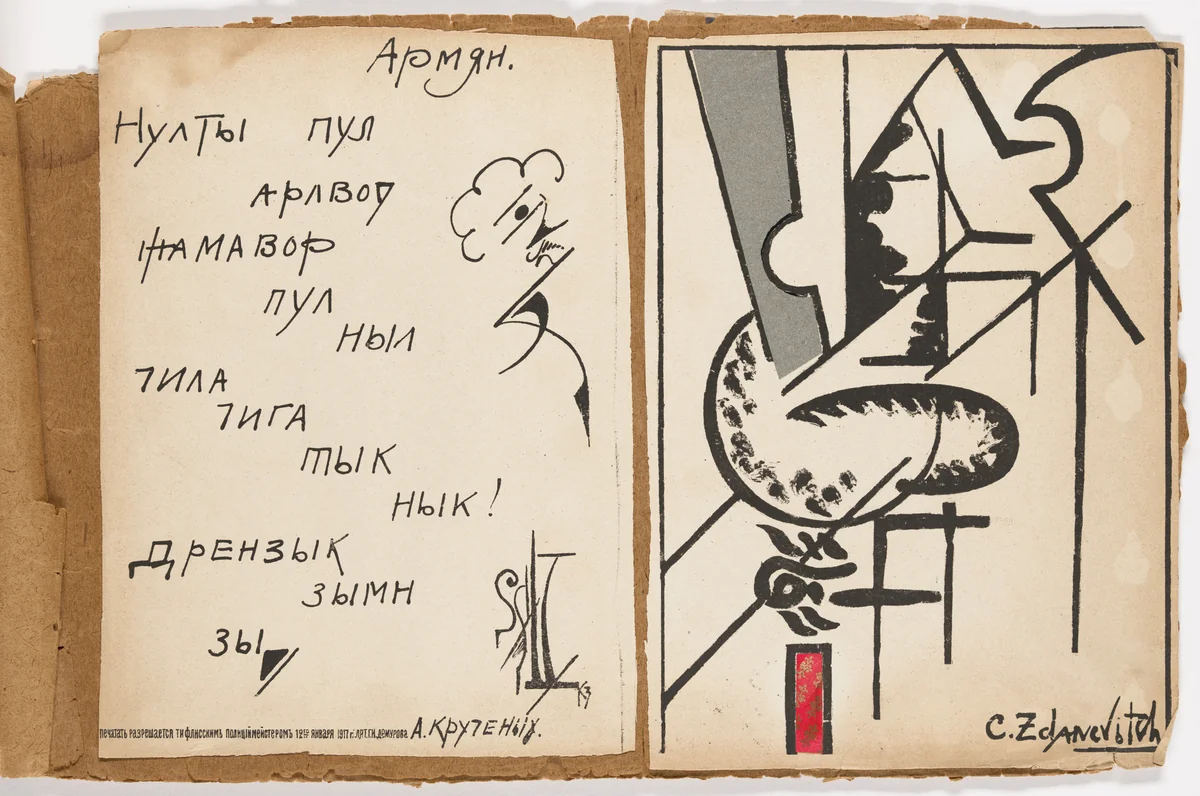 Армян.
Нулты пул
арлвоч
жамавор
пул
ныл
чила
чига
тык
нык!
Дрензык
зымн
зы
печатать разрешается тифлисскимъ полицiймейстеромъ 12го января 1917 г.
А. Крученых.
КЗ
C. Zdanevitch